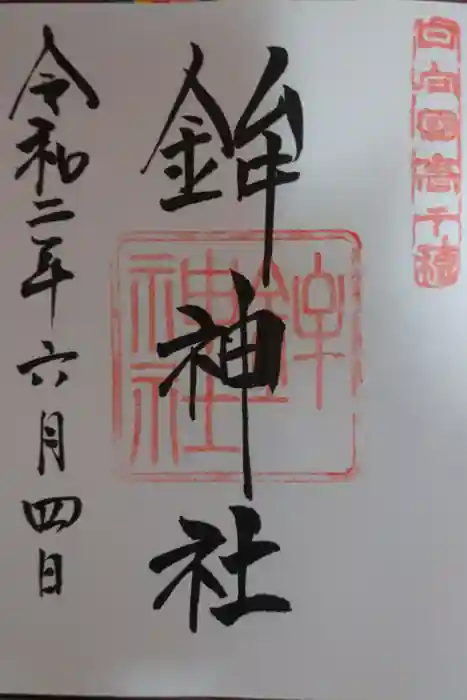 日向国高千穂
鉾神社
鉾神社
令和二年六月四日